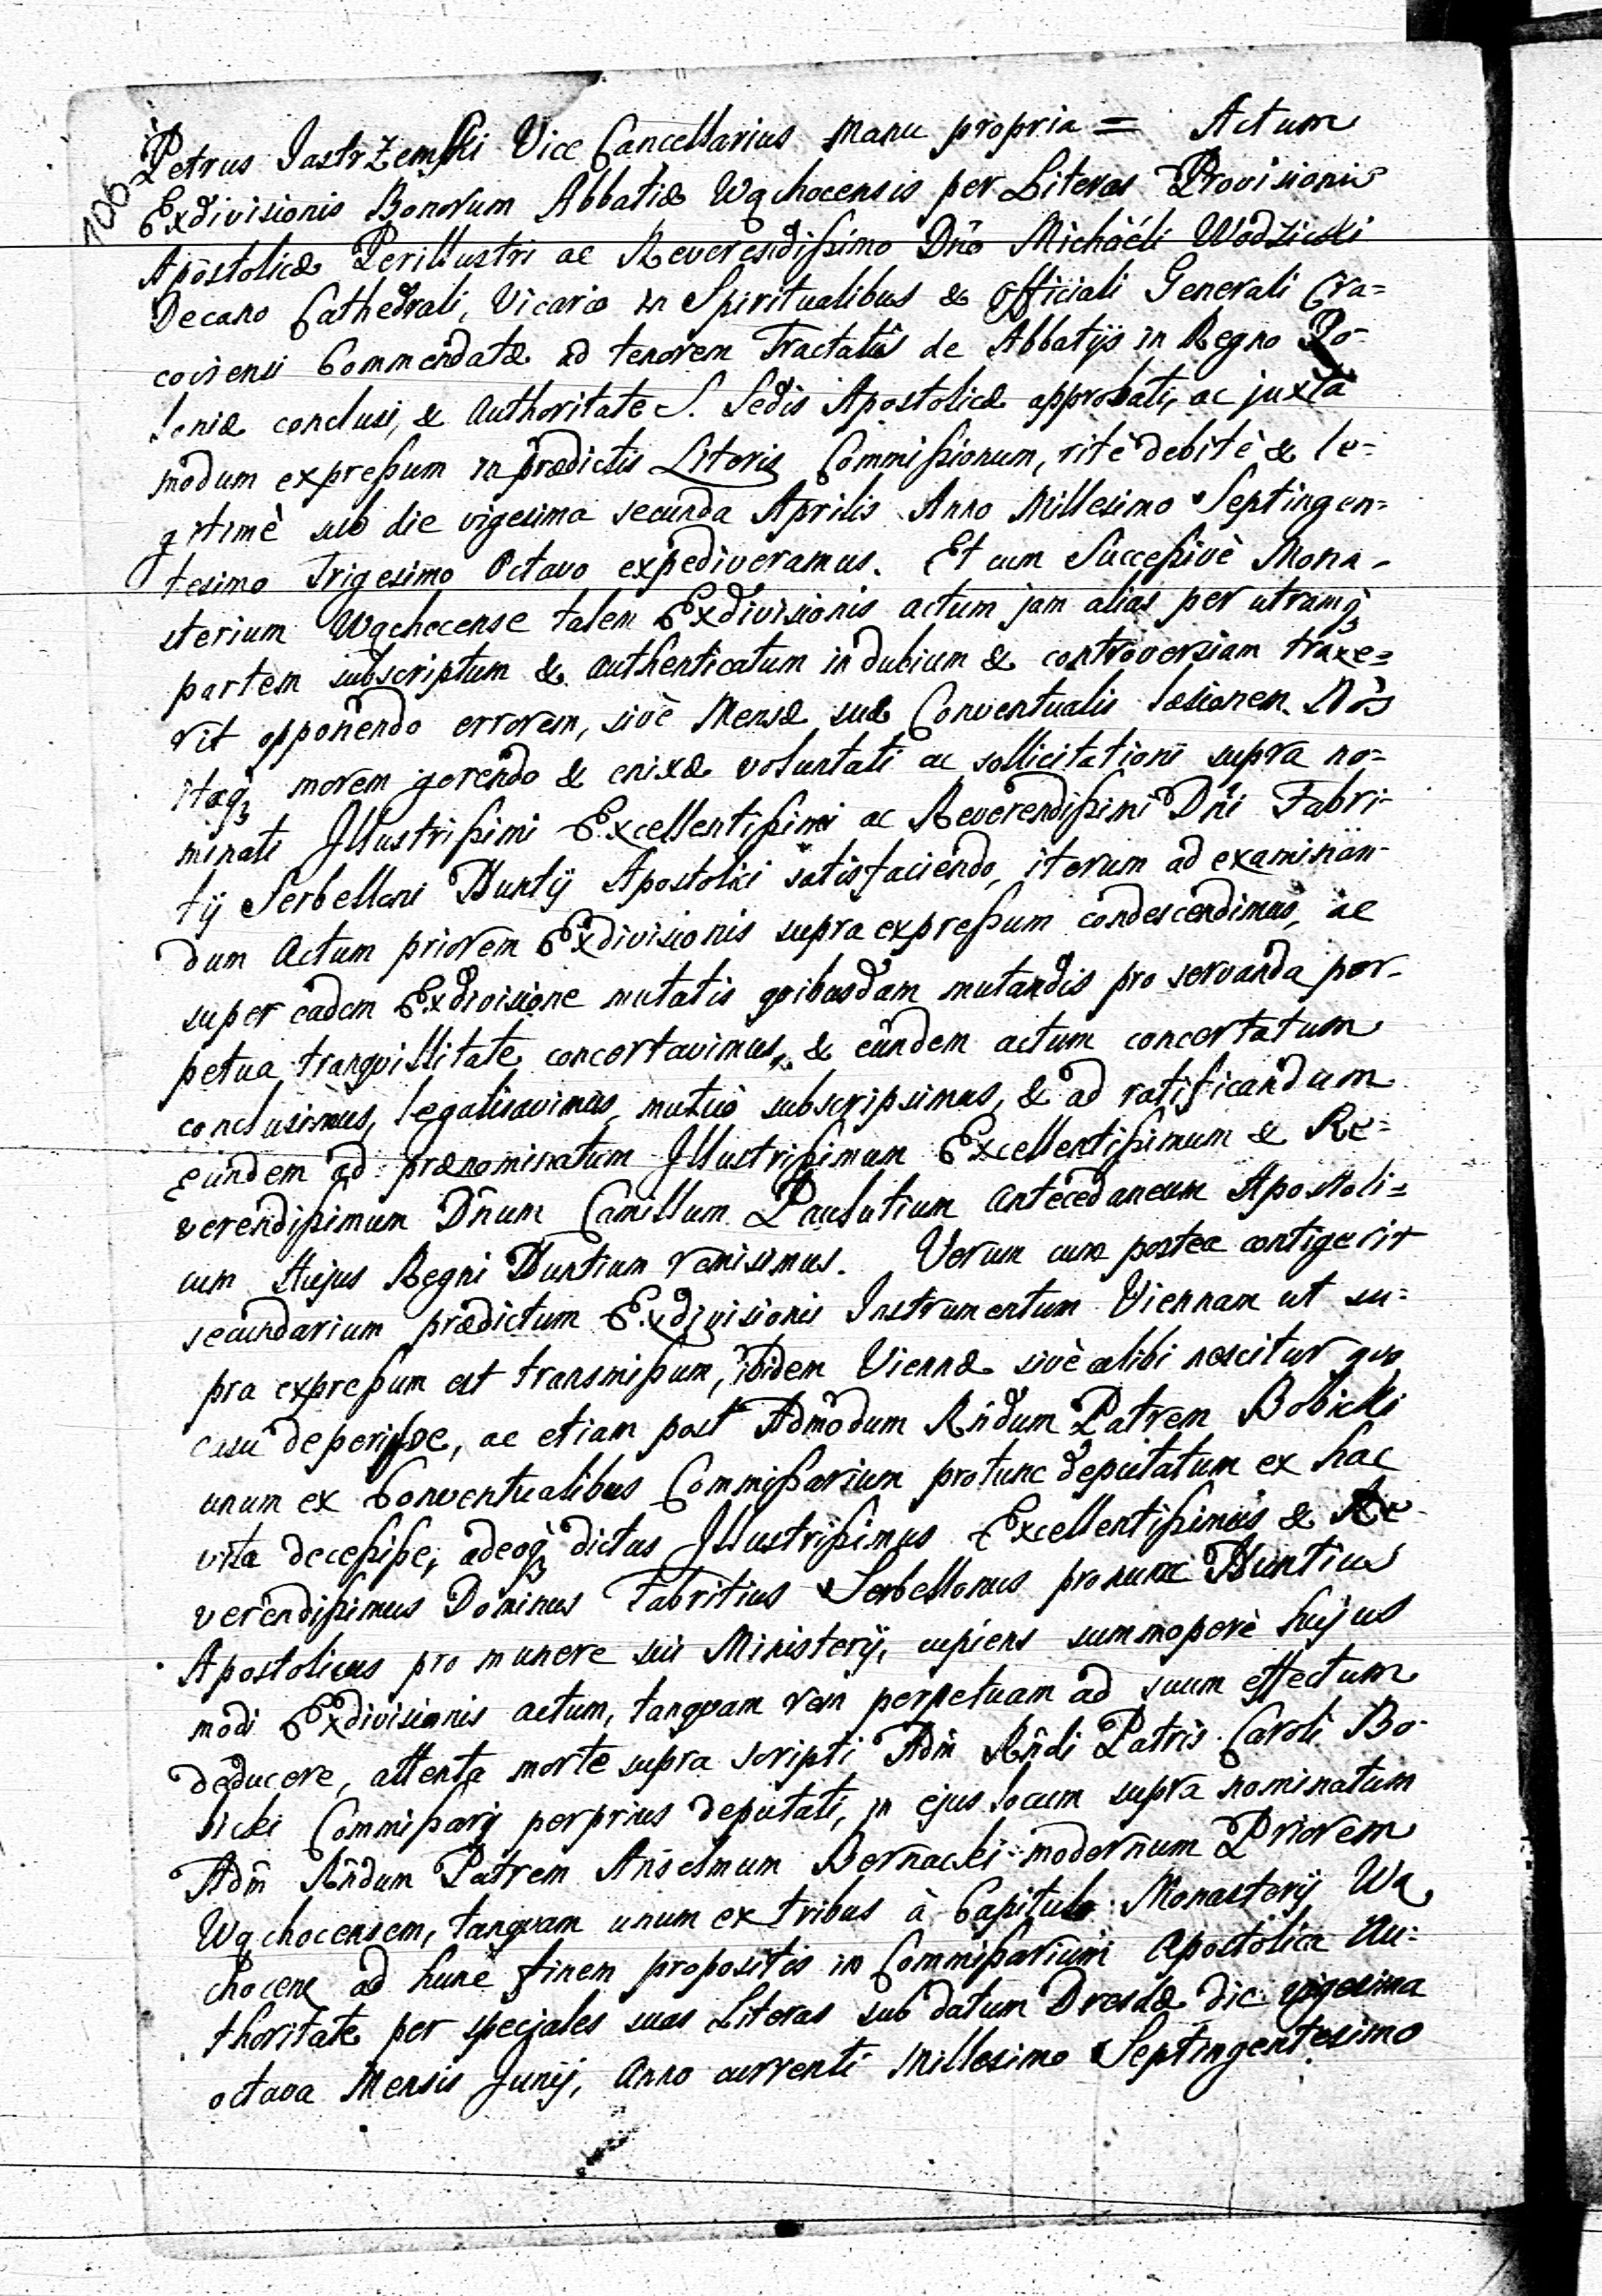 106
Petrus Jastrzemski Vice Cancellarius manu propria = Actum
Exdivisionis Bonorum Abbatiæ Wąchocensis per Literas Provisionis
Apostolicæ Perillustri ac Reverendissimo Dño Michaëli Wodzicki
Decano Cathedrali, Vicario in Spiritualibus & Officiali Generali Cra=
coviensi Commendatæ ad tenorem Tractatûs de Abbatijs in Regno Po-
loniæ conclusi, & authoritate S. Sedis Apostolicæ approbati, ac juxta
modum expressum in prædictis Literis Commissionum, ritè debitè & le=
gitimè sub die vigesima secunda Aprilis Anno Millesimo Septingen=
tesimo Trigesimo Octavo expediveramus. Et cum Successivè Mona-
sterium Wąchocense talem Exdivisionis actum jam alias per utramq3
partem subscriptum & authenticatum in dubium & controversiam traxe=
rit opponendo errorem, sivè Mensæ suæ Conventualis læsionem. Nos
itaq3 morem gerendo & enixæ voluntati ac sollicitationi supra no=
minati Jllustrissimi Excellentissimi ac Reverendissimi Dñi Fabri-
tij Serbelloni Nuntij Apostolici satisfaciendo, iterum ad examinan-
dum Actum priorem Exdivisionis supra expressum condescendimus, ac
super eadem Exdivisione mutatis quibusdam mutandis pro servanda per-
petua tranquillitate concertavimus, & eundem actum concertatum
conclusimus, legalisavimus, mutuò subscripsimus, & ad ratificandum
eundem ad prænominatum Jllustrissimum Excellentissimum & Re=
verendissimum Dñum Camillum Paulutium antecedaneum Apostoli=
cum Hujus Regni Nuntium remisimus. Verum cum postea contigerit
secundarium prædictum Exdivisionis Instrumentum Viennam ut su=
pra expressum est transmissum, ibidem Viennæ sivè alibi nescitur quo
casu deperisse, ac etiam post Admodum Rñdum Patrem Bobicki
unum ex Conventualibus Commissarium protunc deputatum ex hac
vita decessisse, adeoq3 dictus Jllustrissimus Excellentissimus & Re-
verendissimus Dominus Fabritius Serbellonus pronunc Nuntius
Apostolicus pro munere sui Ministerij, cupiens summoperè hujus
modi Exdivisionis actum, tanquam rem perpetuam ad suum effectum
deducere, attenta morte supra scripti Adm̃ Rñdi Patris Caroli Bo-
bicki Commissarij perprius deputati, in ejus locum supra nominatum
Adm̃ Rñdum Patrem Anselmum Bernacki modernum Priorem
Wąchocensem, tanquam unum ex tribus à Capitulo Monasterij Wą
chocens ad hunc finem propositis in Commissarium Apostolica Au=
thoritate per specjales suas Literas sub datum Dresdæ die vigesima
octava Mensis Junij, Anno currenti Millesimo Septingentesimo